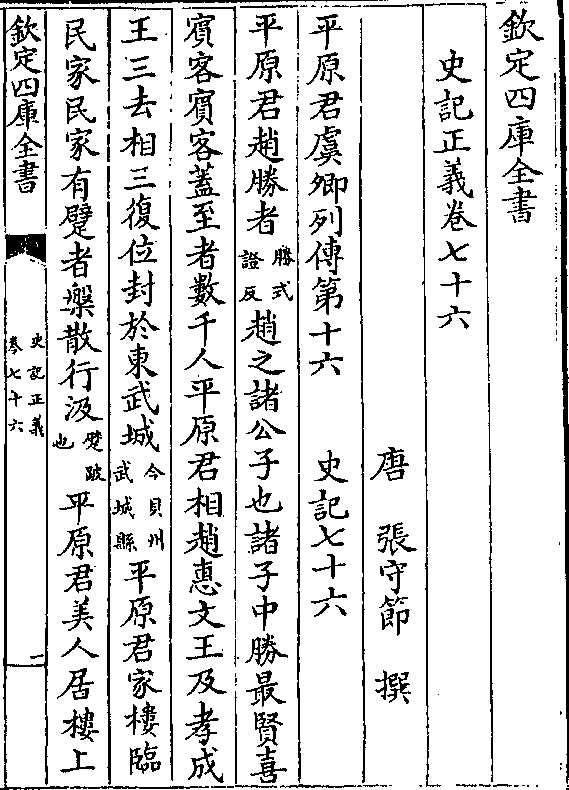 欽定四庫全書
史記正義卷七十六
唐 張守節 撰
平原君虞卿列傳第十六 史記七十六
平原君趙勝者勝式證反趙之諸公子也諸子中勝最賢喜
賓客賓客蓋至者數千人平原君相趙惠文王及孝成
王三去相三復位封於東武城今貝州武城縣平原君家樓臨
民家民家有躄者槃散行汲躄跛也平原君美人居樓上
欽定四庫全書 史記正義卷七十六 一